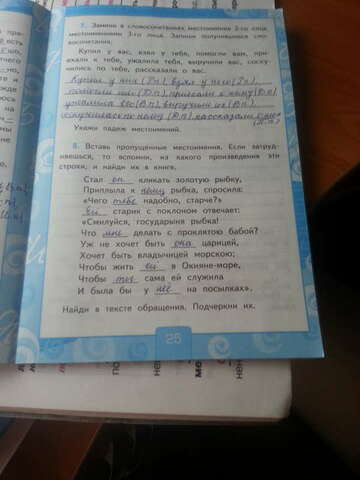 7. Замени в словосочетаниях местоимения 2-го лица
местоимениями 3-го лица. Запиши получившиеся сло-
восочетания.
Купил у вас, взял у тебя, помогли вам, при-
ехали к тебе, ужалила тебя, выручили вас, соску-
чились по тебе, рассказали о вас.
Купил у них (Р.п.), взял у него (Р.п.),
помогли им (Д.п.), приехали к нему (Д.п.)
ужалила его (В.п.), выручили их (В.п.)
соскучились по нему (Д.п.), рассказали о них
(П.п.)
Укажи падеж местоимений.
8. Вставь пропущенные местоимения. Если затруд-
няешься, то вспомни, из какого произведения эти
строки, и найди их в книге.
Стал он кликать золотую рыбку,
Приплыла к нему рыбка, спросила:
«Чего тебе надобно, старче?»
Ей старик с поклоном отвечает:
«Смилуйся, государыня рыбка!
Что мне делать с проклятою бабой?
Уж не хочет быть она царицей,
Хочет быть владычицей морскою;
Чтобы жить ей в Окияне-море,
Чтобы ты сама ей служила
И была бы у неё на посылках».
Найди в тексте обращения. Подчеркни их.
25